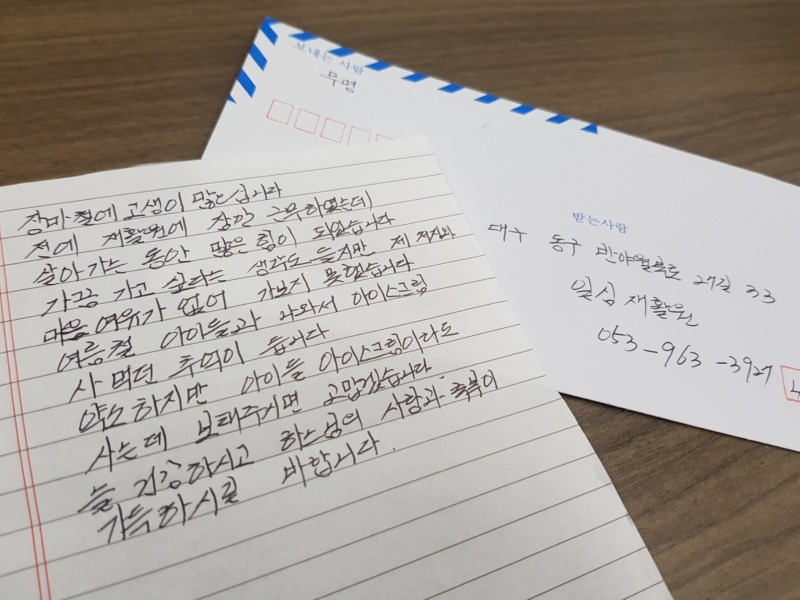 보내는 사람
무명
받는사람
대구 동구 반야월북로 27길 33
일심재활원
053-963-3927
4
장마철에 고생이 많으십니다
전에 재활원에 잠깐 근무하였는데
살아가는 동안 많은 힘이 되었습니다
가끔 가고 싶다는 생각도 들지만 제 처지와
마음 여유가 없어 가보지 못했습니다
여름철 아이들과 나와서 아이스크림
사 먹던 추억이 듭니다
약소하지만 아이들 아이스크림이라도
사는데 보태주시면 고맙겠습니다
늘 건강하시고 하느님의 사랑과 축복이
가득하시길 바랍니다.